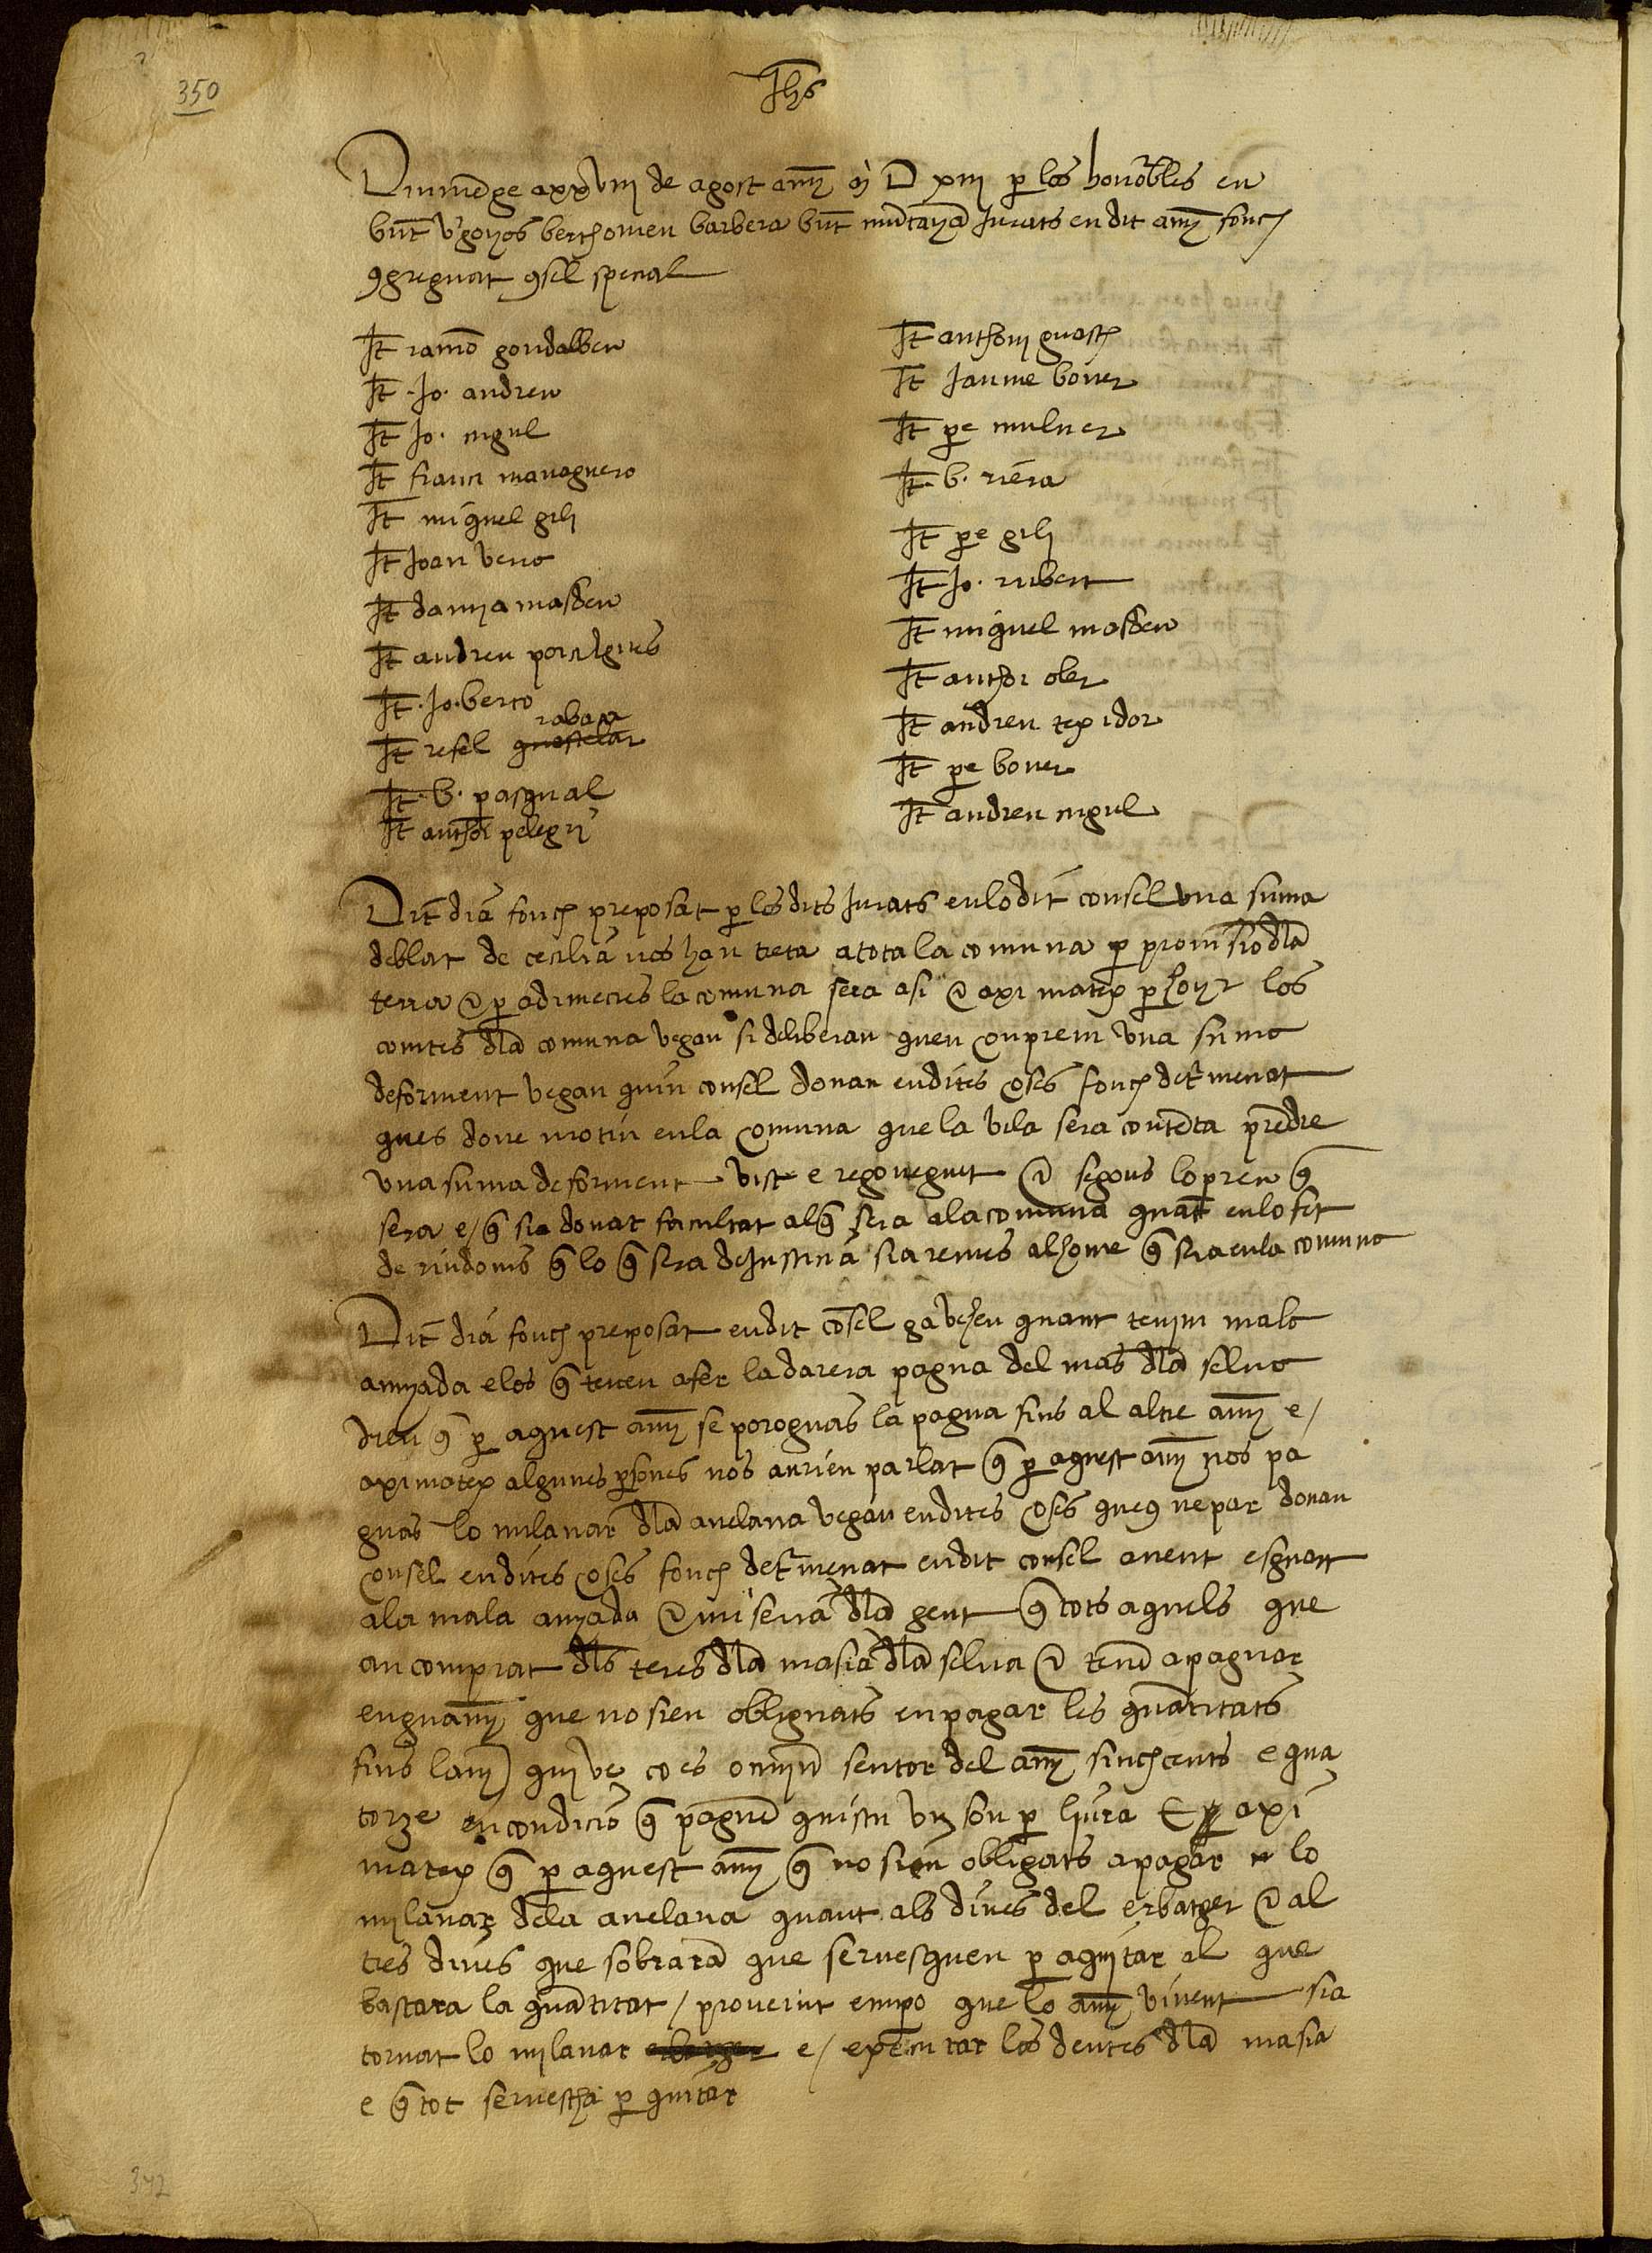 350
Jhs
Diumēge a xxviii de agost añy M D xiii p los honorables en
bñt vgoyos berthomeu barbera bñt mūtayā Jurats en dit añy fonch
9gregnat 9sel special
It ramō gondalbeu
It Jo. andreu
It Jo. mgul
It franci managuero
It miguel gili
It Joan veno
It damya masdeu
It andreu porcalgues
It Jo. berto
It rafel guastelar rabasa
It b. pasqual
It anthoi pelegri
It anthoni guasch
It Jaume bover
It pe mulner
It b. riera
It pe gili
It Jo. rubert
It miguel masdeu
It anthoi oler
It andreu texidor
It pe bover
It andreu mgul
Dit dia fonch preposat p los dits Jurats en lo dit consel una suma
de blat de cecilia nos han treta a tota la comuna p provisio dla
terra e p adimecres la comuna sera asi e axi matex p hoyr los
comtes dla comuna vegan si deliberan quen conprem una suma
de forment vegan quin consel donan en dites coses fonch detmenat
ques done motiu en la comuna que la vila sera contēta prēdre
una suma de forment vist e regonegut e segons lo preu q̄
sera e/ q̄ sia donat facultat al q̄ sera a la comuna quāt en lo fet
de riudoms q̄ lo q̄ sera de Justicia sia remes al home q̄ sia en la comuna
Dit dia fonch preposat en dit cōsel ja veheu quant tenim mala
anyada e los q̄ tenen afer la darera pagua del mas dla selva
dieu q̄ p aquest añy se poroguas la pagua fins al altre añy e/
axi matex algunes psones nos aurien parlat q̄ p aquest añy nos pa
guas lo milanar dla avelana vegau en dites coses queus ne par donau
consel en dites coses fonch detmenat en dit consel avent esguart
a la mala anyada e miseria dla gent q̄ tots aquels que
an comprat dls teres dla masia dla selva e tenē a paguar
enguañy que no sien obliguats en pagar les quātitats
fins lañy qui ve co es sentor del añy sinchcents e qua
torze en condicio q̄ paguē quiscu un sou p liura E p axi
matex q̄ p aquest añy q̄ no sien obligats a pagar lo
mylanar dela avelana quant als dines del erbatger e al
tres dines que sobrarā que servesquen p aquitar al que
bastara la quātitat / proveint empo que lo añy vinent sia
tornat lo mylanar e/ execu tar los deutes dla masia
e q̄ tot servescha p quitar
342